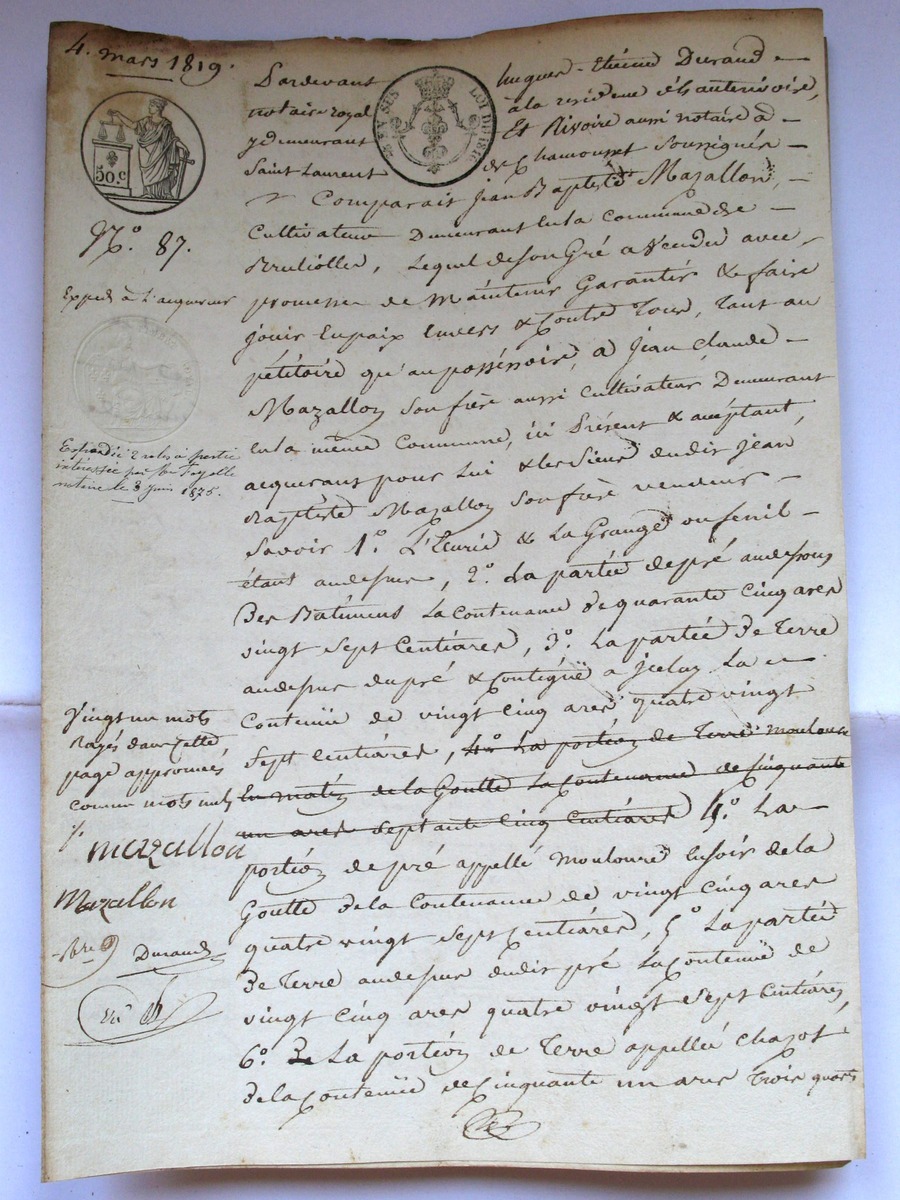 4. mars 1819.
50.c
LOI DE 1816
N.° 87.
Exped. à l'acquereur
Pardevant hugues-Etienne Durand
notaire royal à la residence
y demeurant Et Rivoire aussi notaire à
Saint Laurent de Chamousset soussignés
Comparait Jean Baptiste Mazallon,
Cultivateur Demeurant en la Commune de
Brullolles, Lequel de son Gré a Vendu avec
promesse de Maintenir Garantir & faire
jouir en paix Envers & Contre Tous, Tant au
pétitoire qu'au possessoire, à Jean Claude
Mazallon son frère aussi cultivateur Demeurant
en la même Commune, ici Présent & acceptant,
acquerant pour Lui & les Siens dudit Jean
Baptiste Mazallon son frère vendeur
Savoir 1.° L'Ecurie & La Grange ou fenil
étant audessus, 2.° La partie de pré audessous
Des Batimens La Contenance de quarante Cinq ares
vingt Sept Centiares, 3.° La partie De Terre
audessus du pré & Contigüe à Icelui La
Contenüe de vingt Cinq ares quatre vingt
Sept Centiares, 4.° La portion de Terre Mouloure
En matin de la Goutte La Contenance de Cinquante
un ares Septante Cinq Centiares 4.° La
portion de pré appellé Mouloure En soir de la
Goutte De la Contenance de vingt Cinq ares
quatre vingt Sept Centiares, 5.° La partie
De Terre audessus dudit pré La Contenüe de
vingt Cinq ares quatre vingt Sept Centiares,
6.° La portion de Terre appellée Chazot
De la Contenüe de Cinquante un ares Trois quarts
2 roles à partie
intéressée par
notaire le 3 juin 1875.
Vingt un mots
Rayés dans Cette
page approuvés
comme mots nuls
Mazallon
Mazallon
Durand